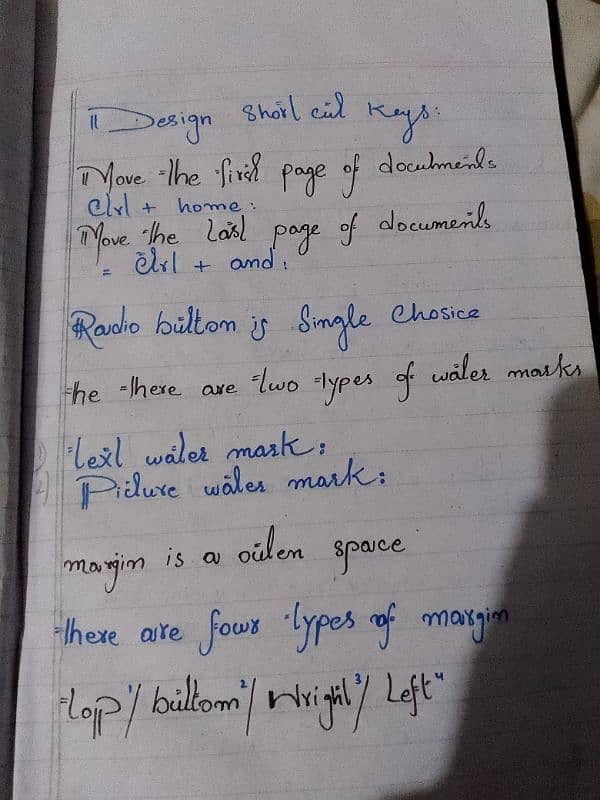 Design Short cut Keys:
Move the first page of documents
Ctrl + home:
Move the last page of documents
= Ctrl + and:
Radio buttom is Single Chosice
the there are two types of water marks
1) text water mark:
2) Picture water mark:
margin is a outen space
there are four types of margin
topp 1/ buttom 2/ Wright 3/ Left 4